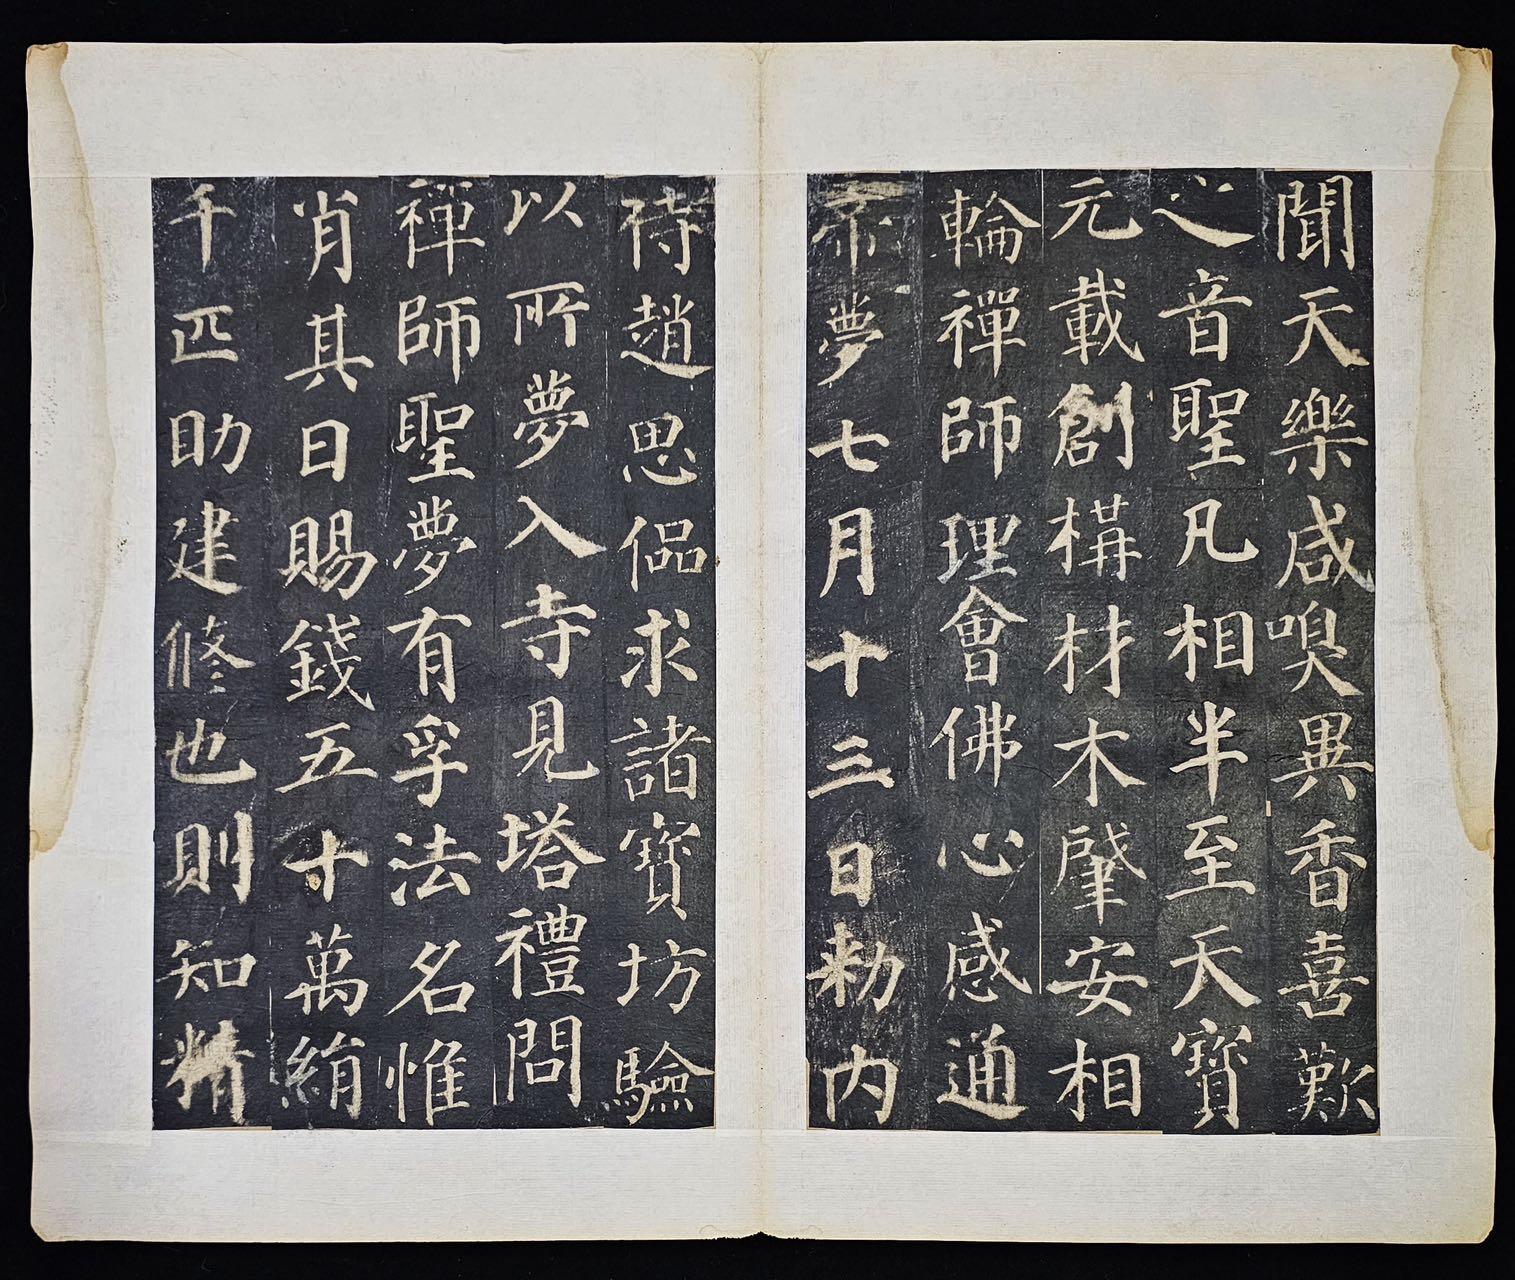 聞天樂咸嗅異香喜歎
之音聖凡相半至天寶
元載創構材木肇安相
輪禪師理會佛心感通
帝夢七月十三日勑內
侍趙思偘求諸寶坊驗
以所夢入寺見塔禮問
禪師聖夢有孚法名惟
肖其日賜錢五十萬絹
千匹助建修也則知精